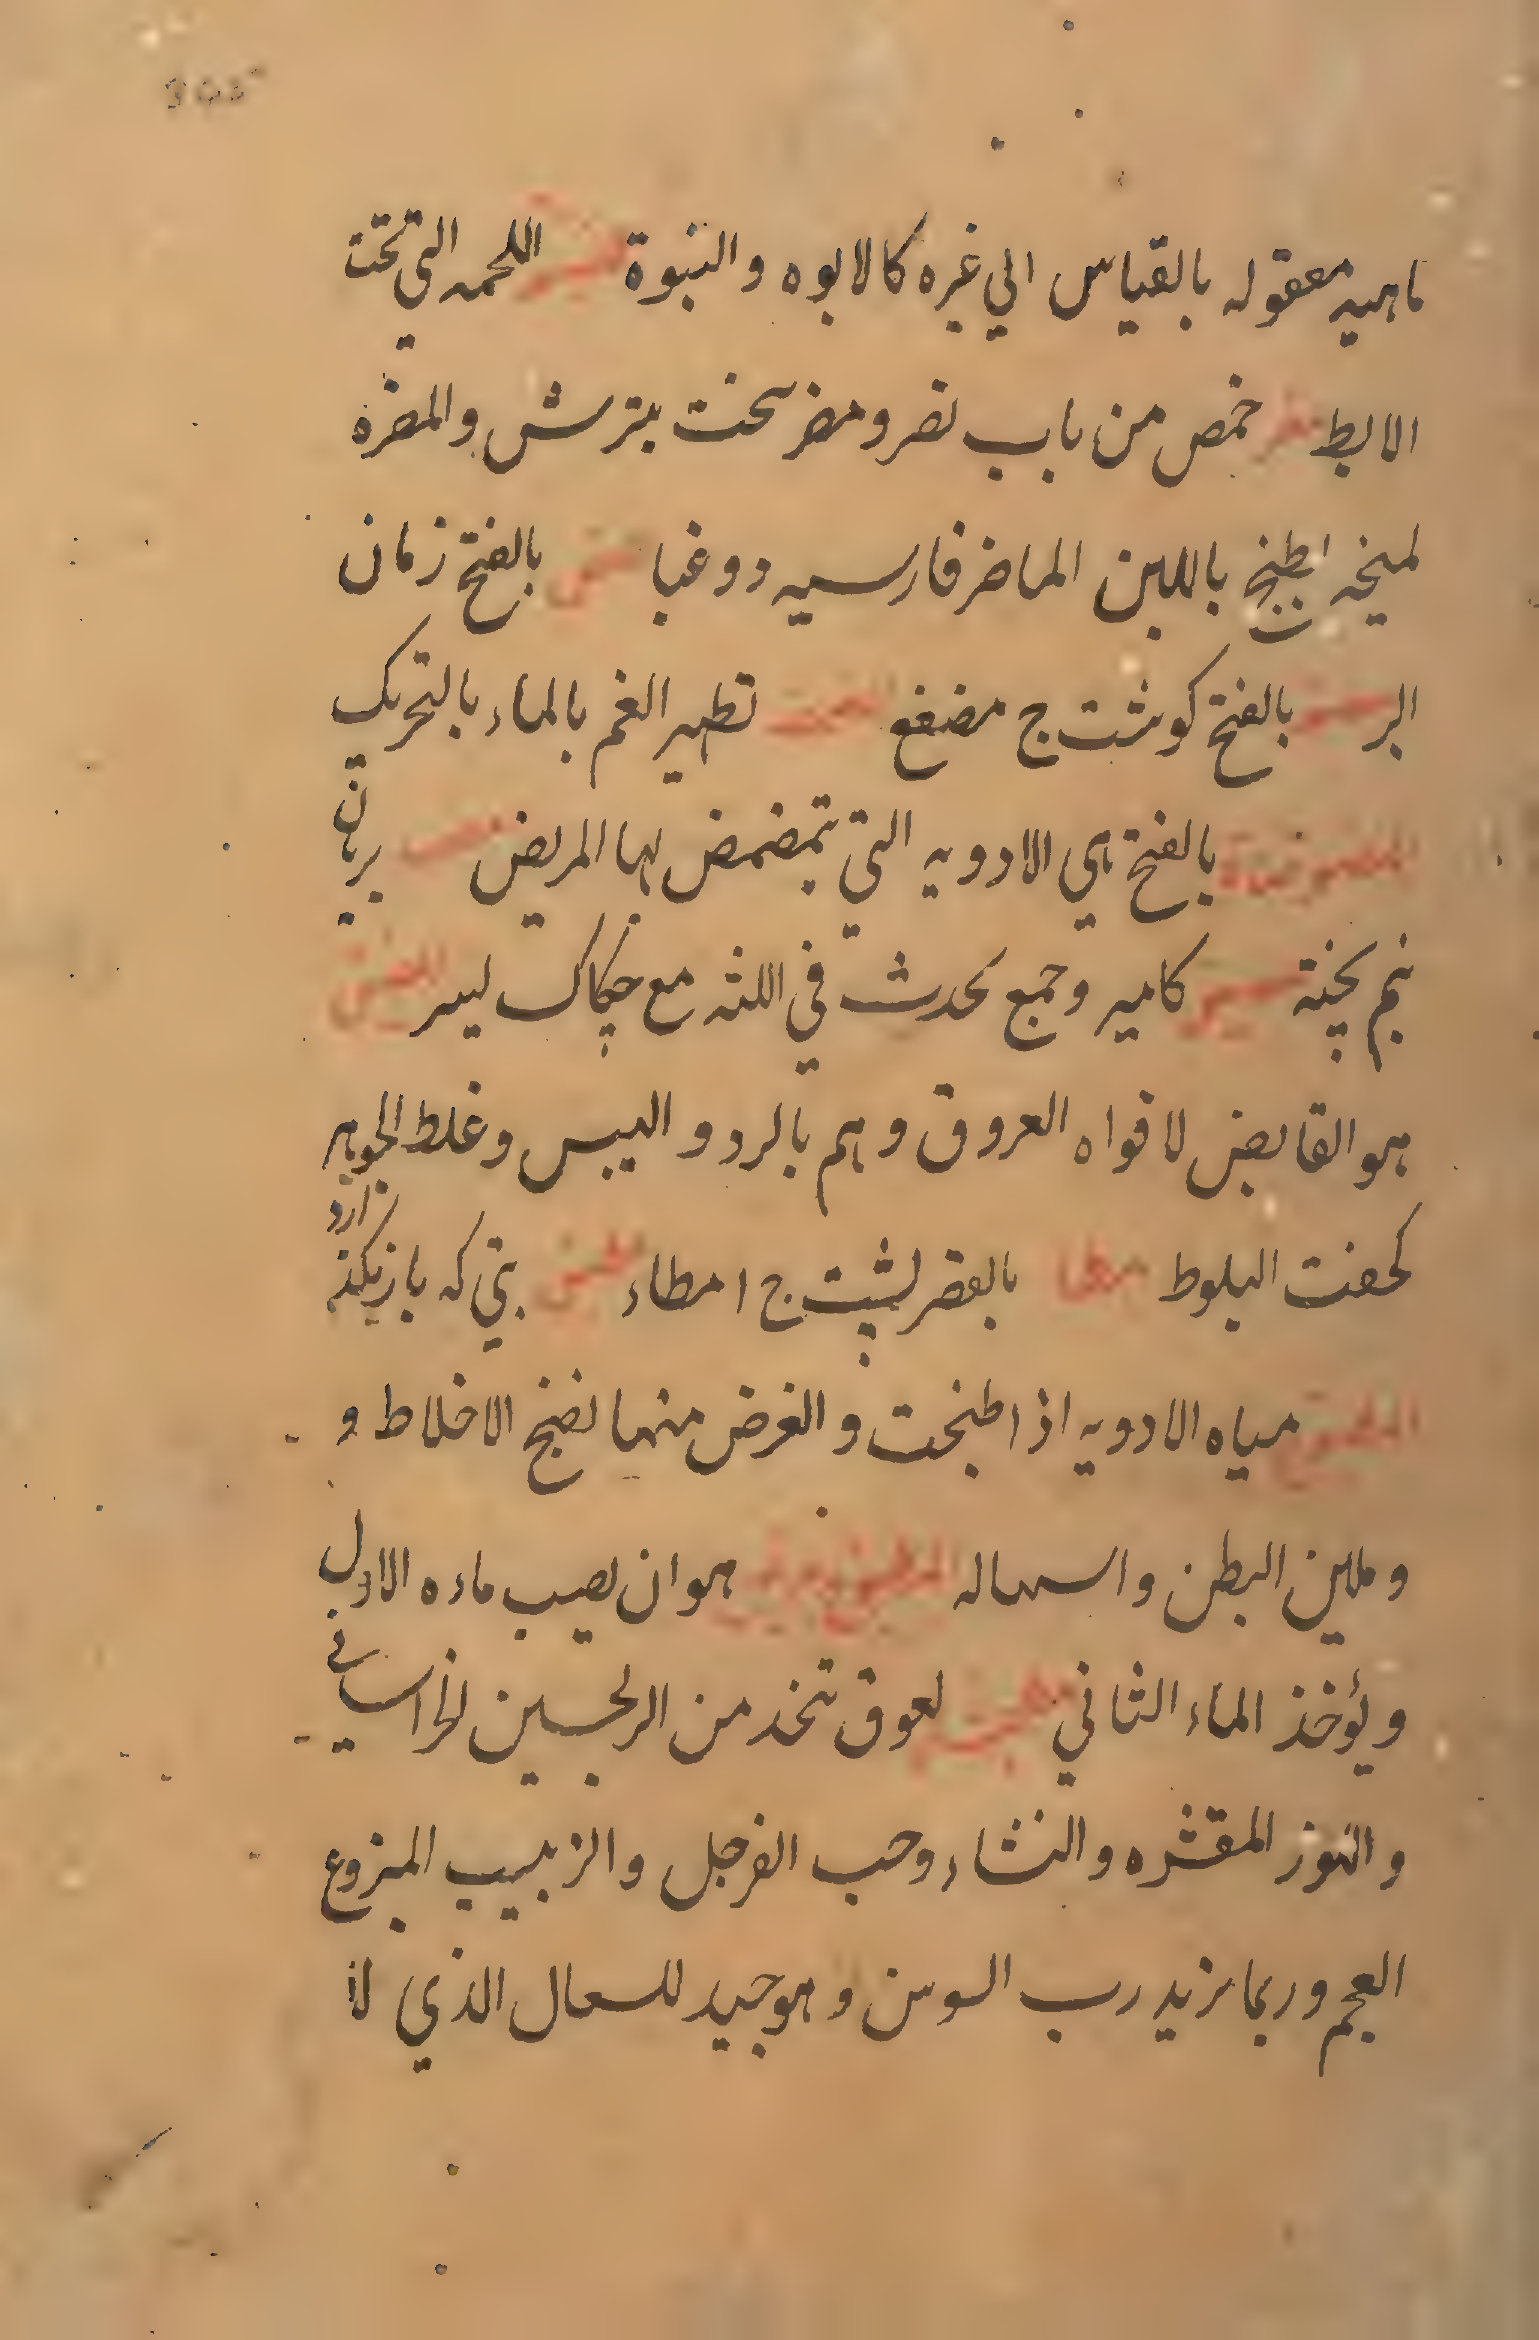 ماهيه معقوله بالقياس الي غيره كالابوه والنبوة اللحمه التي تحت
الابط مضر حمض من باب نصر ومضر سخت بترش والمضره
لميخه تطبخ باللبن الماضر فارسيه دوغبا بالفتح زمان
البر بالفتح كوشت ج مضغ تطهير الفم بالماء بالتحريك
بالفتح هي الادويه التي تمضمض لها المريض بريان
نيم پخته كامير وجمع يحدث في اللثه مع حكاك يسير
هو القابض لافواه العروق وهم بالبرد واليبس وغلظ الجوهر
كجفت البلوط مطا بالقصر پشت ج امطاء تبي كه بازيكند ارد
المطبوخ مياه الادويه اذا طبخت والغرض منها نضج الاخلاط و
وملين البطن واسهاله هو ان يصب ماءه الاول
ويؤخذ الماء الثاني لعوق تتخذ من الترنجبين الخراساني
واللوز المقشره والنشاء وحب السفرجل والزبيب المنزوع
العجم وربما يزيد رب السوس وهو جيد للسعال الذي لا